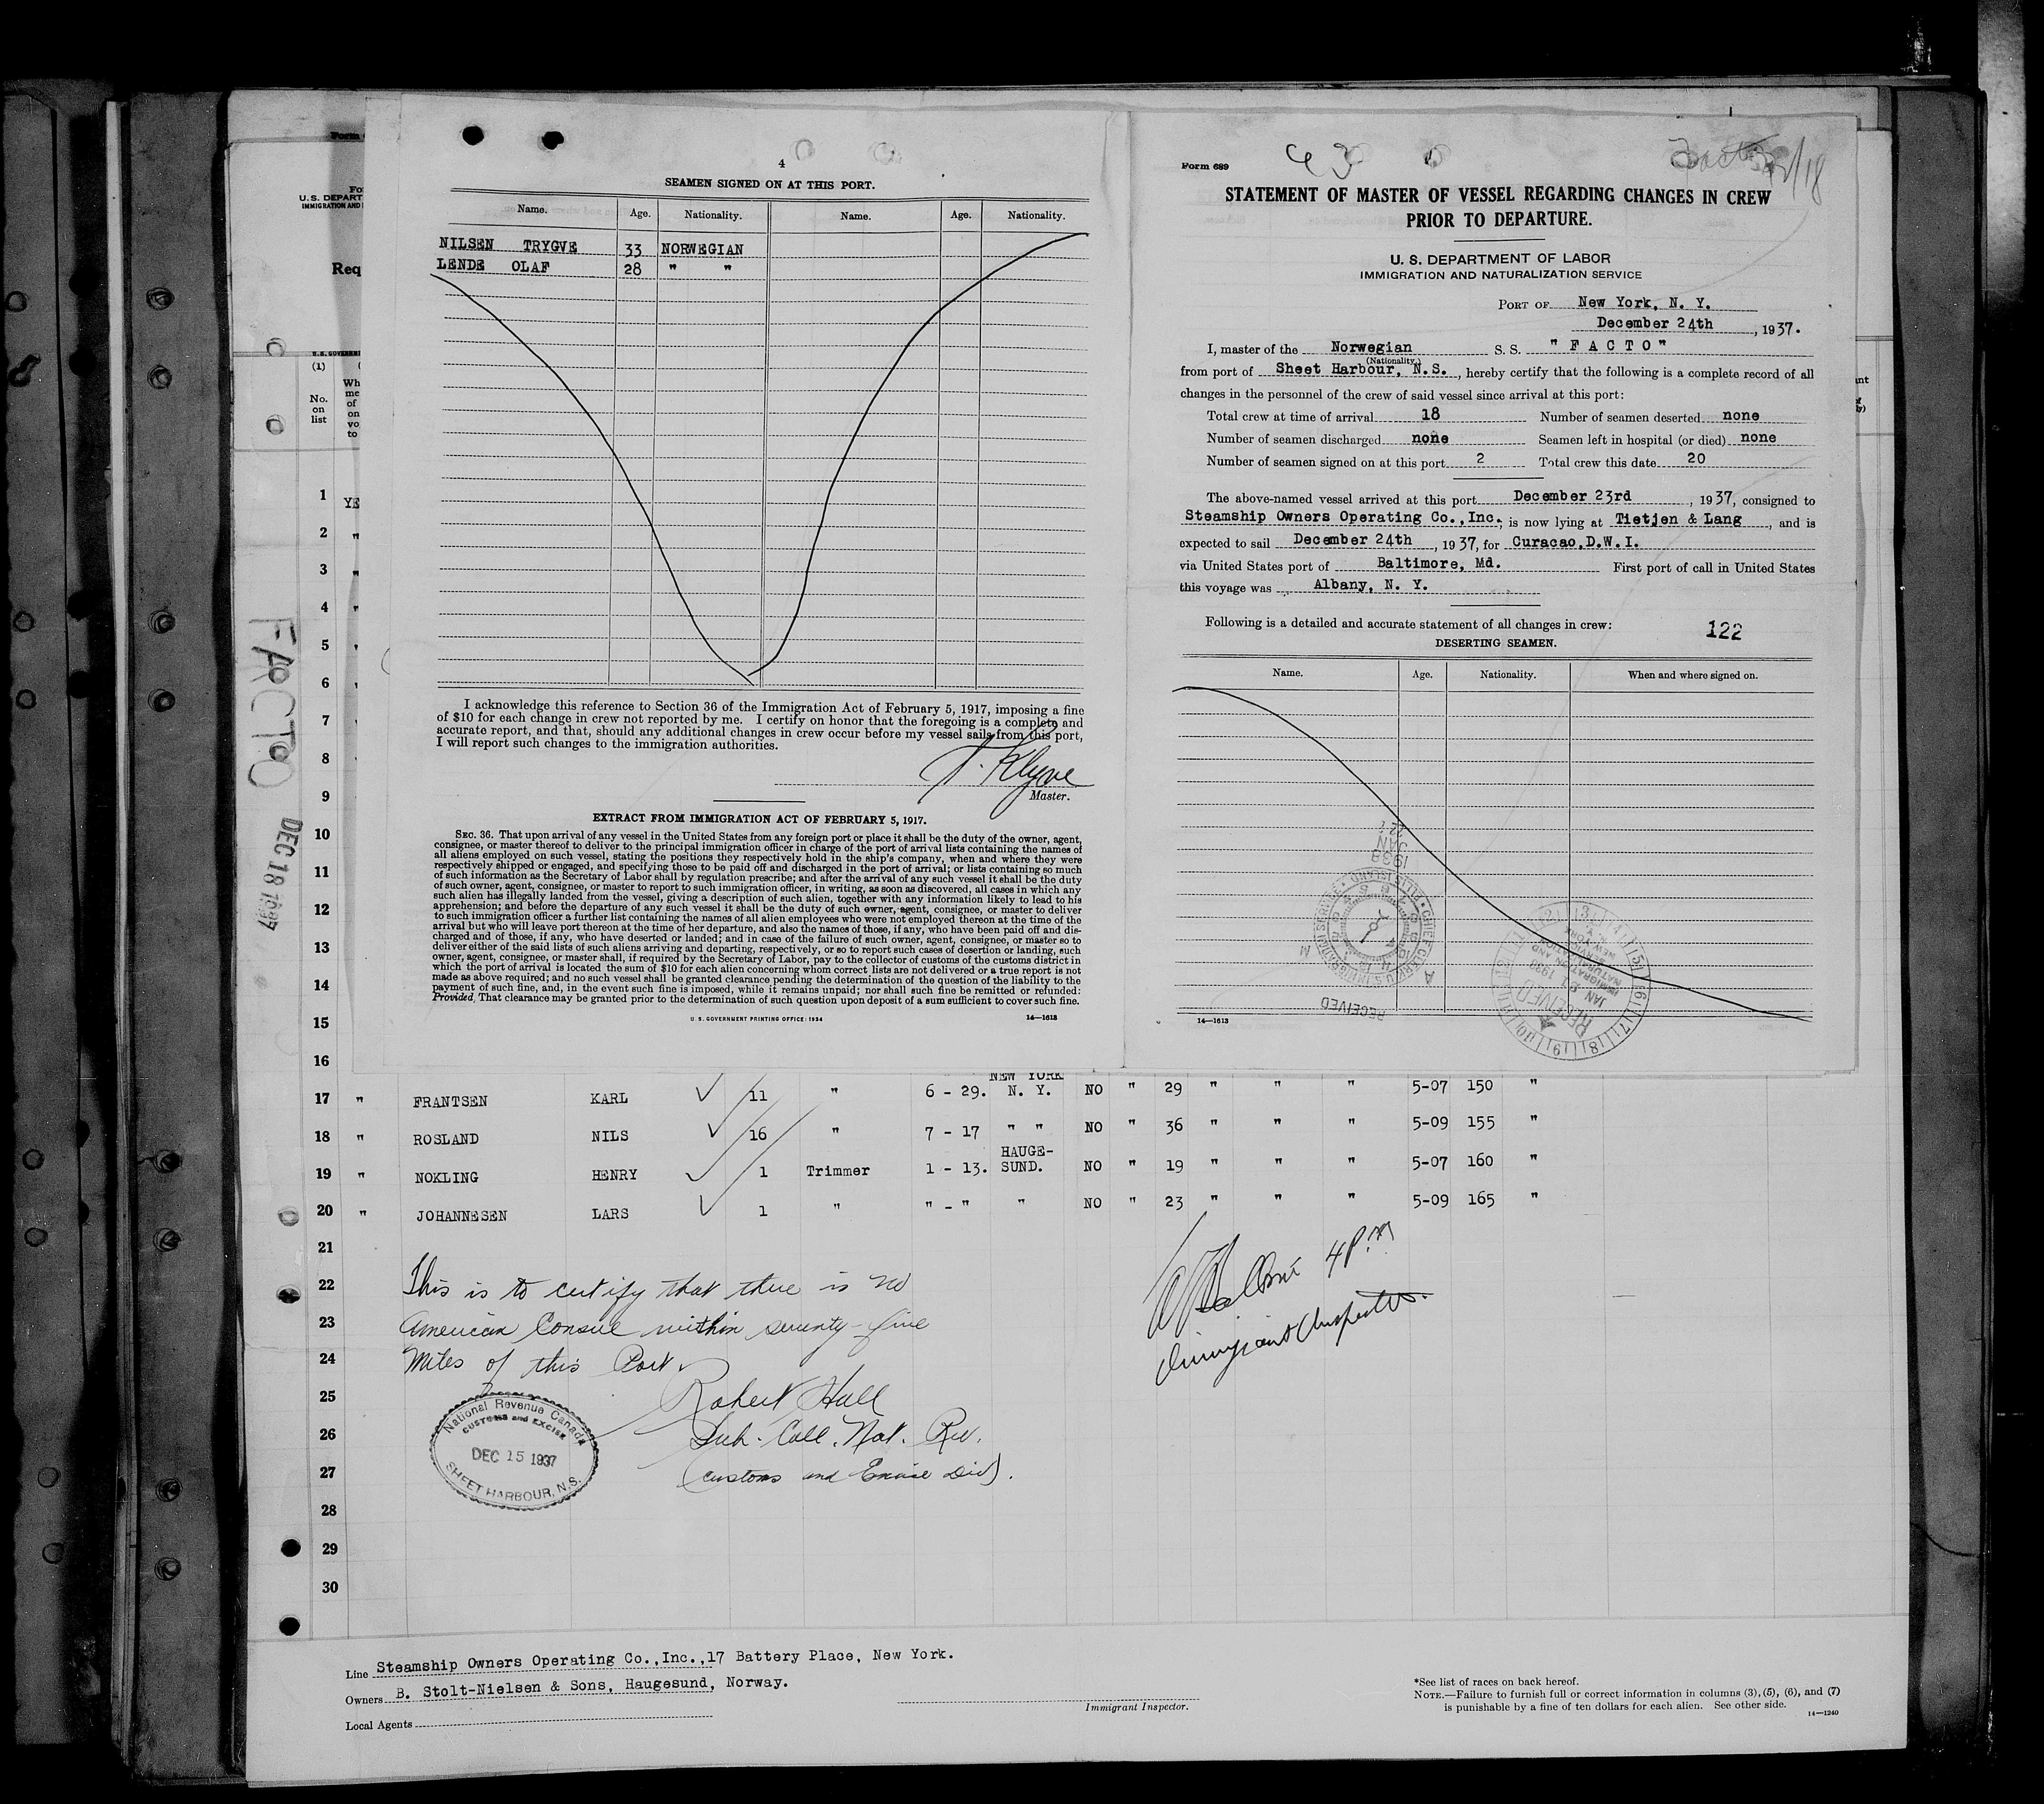 4
SEAMEN SIGNED ON AT THIS PORT.
Name. Age. Nationality. Name. Age. Nationality.
NILSEN TRYGVE 33 NORWEGIAN
LENDE OLAF 28 " "
I acknowledge this reference to Section 36 of the Immigration Act of February 5, 1917, imposing a fine
of $10 for each change in crew not reported by me. I certify on honor that the foregoing is a complete and
accurate report, and that, should any additional changes in crew occur before my vessel sails from this port,
I will report such changes to the immigration authorities.
T. Klyve
Master.
EXTRACT FROM IMMIGRATION ACT OF FEBRUARY 5, 1917.
SEC. 36. That upon arrival of any vessel in the United States from any foreign port or place it shall be the duty of the owner, agent,
consignee, or master thereof to deliver to the principal immigration officer in charge of the port of arrival lists containing the names of
all aliens employed on such vessel, stating the positions they respectively hold in the ship's company, when and where they were
respectively shipped or engaged, and specifying those to be paid off and discharged in the port of arrival; or lists containing so much
of such information as the Secretary of Labor shall by regulation prescribe; and after the arrival of any such vessel it shall be the duty
of such owner, agent, consignee, or master to report to such immigration officer, in writing, as soon as discovered, all cases in which any
such alien has illegally landed from the vessel, giving a description of such alien, together with any information likely to lead to his
apprehension; and before the departure of any such vessel it shall be the duty of such owner, agent, consignee, or master to deliver
to such immigration officer a further list containing the names of all alien employees who were not employed thereon at the time of the
arrival but who will leave port thereon at the time of her departure, and also the names of those, if any, who have been paid off and dis-
charged and of those, if any, who have deserted or landed; and in case of the failure of such owner, agent, consignee, or master so to
deliver either of the said lists of such aliens arriving and departing, respectively, or so to report such cases of desertion or landing, such
owner, agent, consignee, or master shall, if required by the Secretary of Labor, pay to the collector of customs of the customs district in
which the port of arrival is located the sum of $10 for each alien concerning whom correct lists are not delivered or a true report is not
made as above required; and no such vessel shall be granted clearance pending the determination of the question of the liability to the
payment of such fine, and, in the event such fine is imposed, while it remains unpaid; nor shall such fine be remitted or refunded:
Provided, That clearance may be granted prior to the determination of such question upon deposit of a sum sufficient to cover such fine.
U. S. GOVERNMENT PRINTING OFFICE: 1934 14—1613
Form 689
43
Facto 12/18
STATEMENT OF MASTER OF VESSEL REGARDING CHANGES IN CREW
PRIOR TO DEPARTURE.
U. S. DEPARTMENT OF LABOR
IMMIGRATION AND NATURALIZATION SERVICE
PORT OF New York, N. Y.
December 24th, 1937.
I, master of the Norwegian S. S. " F A C T O "
(Nationality.)
from port of Sheet Harbour, N.S., hereby certify that the following is a complete record of all
changes in the personnel of the crew of said vessel since arrival at this port:
Total crew at time of arrival 18 Number of seamen deserted none
Number of seamen discharged none Seamen left in hospital (or died) none
Number of seamen signed on at this port 2 Total crew this date 20
The above-named vessel arrived at this port December 23rd, 1937, consigned to
Steamship Owners Operating Co.,Inc., is now lying at Tietjen & Lang, and is
expected to sail December 24th, 1937, for Curacao,D.W.I.
via United States port of Baltimore, Md. First port of call in United States
this voyage was Albany, N. Y.
Following is a detailed and accurate statement of all changes in crew:
122
DESERTING SEAMEN.
Name. Age. Nationality. When and where signed on.
RECEIVED
1938 JAN 21
CHIEF CLERK U.S. IMMIGRATION SERVICE ELLIS ISLAND
RECEIVED
JAN 21 1938
IMMIGRATION AND NATURALIZATION
14—1613
Fo
U. S. DEPART
IMMIGRATION AND
Req
U.S. GOVERNME
(1)
No.
on
list
Wh
me
of
on
vo
to
1 YE
2 "
3 "
4 "
5
6
7
8
9
10
11
12
13
14
15
16
FACTO
DEC 18 1937
NEW YORK
17 " FRANTSEN KARL 11 " 6 - 29. N. Y. NO " 29 " " " 5-07 150 "
18 " ROSLAND NILS 16 " 7 - 17 " " NO " 36 " " " 5-09 155 "
HAUGE-
19 " NOKLING HENRY 1 Trimmer 1 - 13. SUND. NO " 19 " " " 5-07 160 "
20 " JOHANNESEN LARS 1 " " - " " NO " 23 " " " 5-09 165 "
21
22 This is to certify that there is no
23 American Consul within seventy-five
24 Miles of this Port.
25 Robert Hall
26 Sub. Coll. Nat. Rev.
27 (customs and Excise Div).
28
29
30
4 P.M
Immigrant Inspector.
National Revenue Canada
CUSTOMS and EXCISE
DEC 15 1937
SHEET HARBOUR, N.S.
Line Steamship Owners Operating Co.,Inc.,17 Battery Place, New York.
Owners B. Stolt-Nielsen & Sons, Haugesund, Norway.
Local Agents
Immigrant Inspector.
*See list of races on back hereof.
NOTE.—Failure to furnish full or correct information in columns (3), (5), (6), and (7)
is punishable by a fine of ten dollars for each alien. See other side.
14—1240